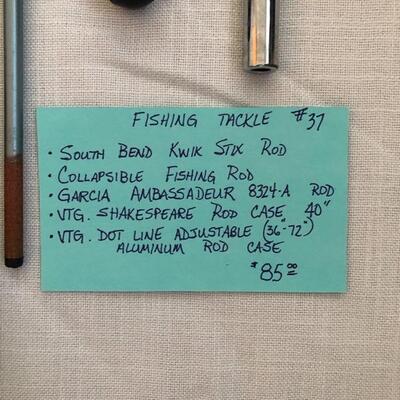 FISHING TACKLE #37
• SOUTH BEND KWIK STIX ROD
• COLLAPSIBLE FISHING ROD
• GARCIA AMBASSADEUR 8324-A ROD
• VTG. SHAKESPEARE ROD CASE 40"
• VTG. DOT LINE ADJUSTABLE (36"-72")
ALUMINUM ROD CASE
$85.00